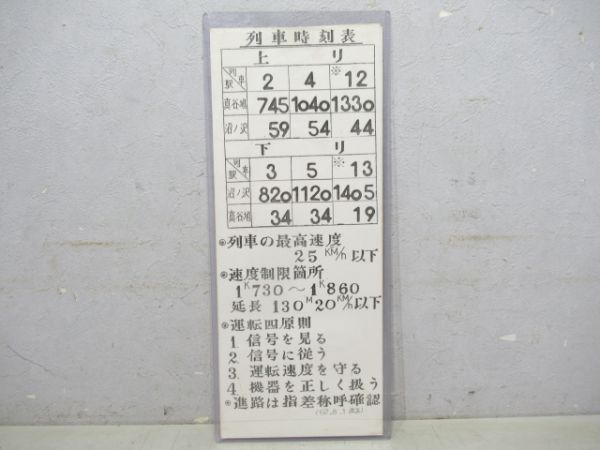 列車時刻表
上り
列車 駅 2 4 ※12
真谷地 745 1040 1330
沼ノ沢 59 54 44
下り
列車 駅 3 5 ※13
沼ノ沢 820 1120 1405
真谷地 34 34 19
◉列車の最高速度
25KM/h以下
◉速度制限箇所
1K730～1K860
延長 130M20KM/h以下
◉運転四原則
1 信号を見る
2 信号に従う
3. 運転速度を守る
4 機器を正しく扱う
◉進路は指差称呼確認